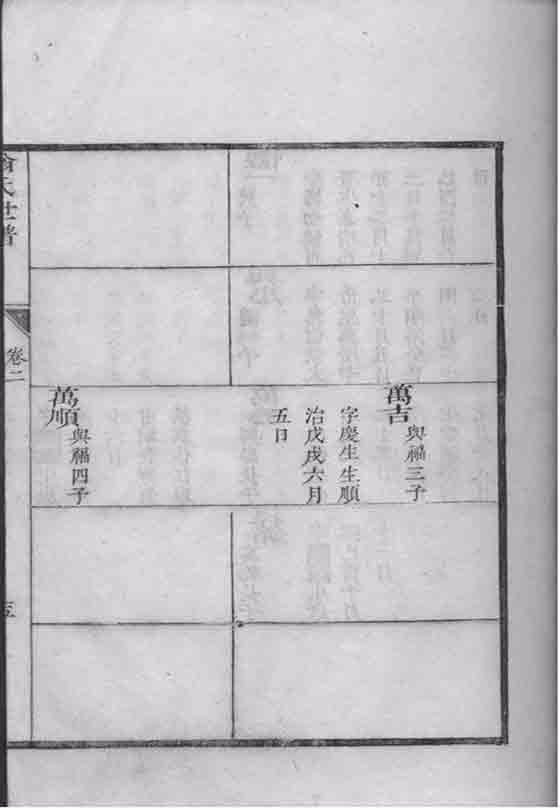 萬吉
與福三子
字慶生生順
治戊戌六月
五日
萬順
與福四子
氏世譜
卷二